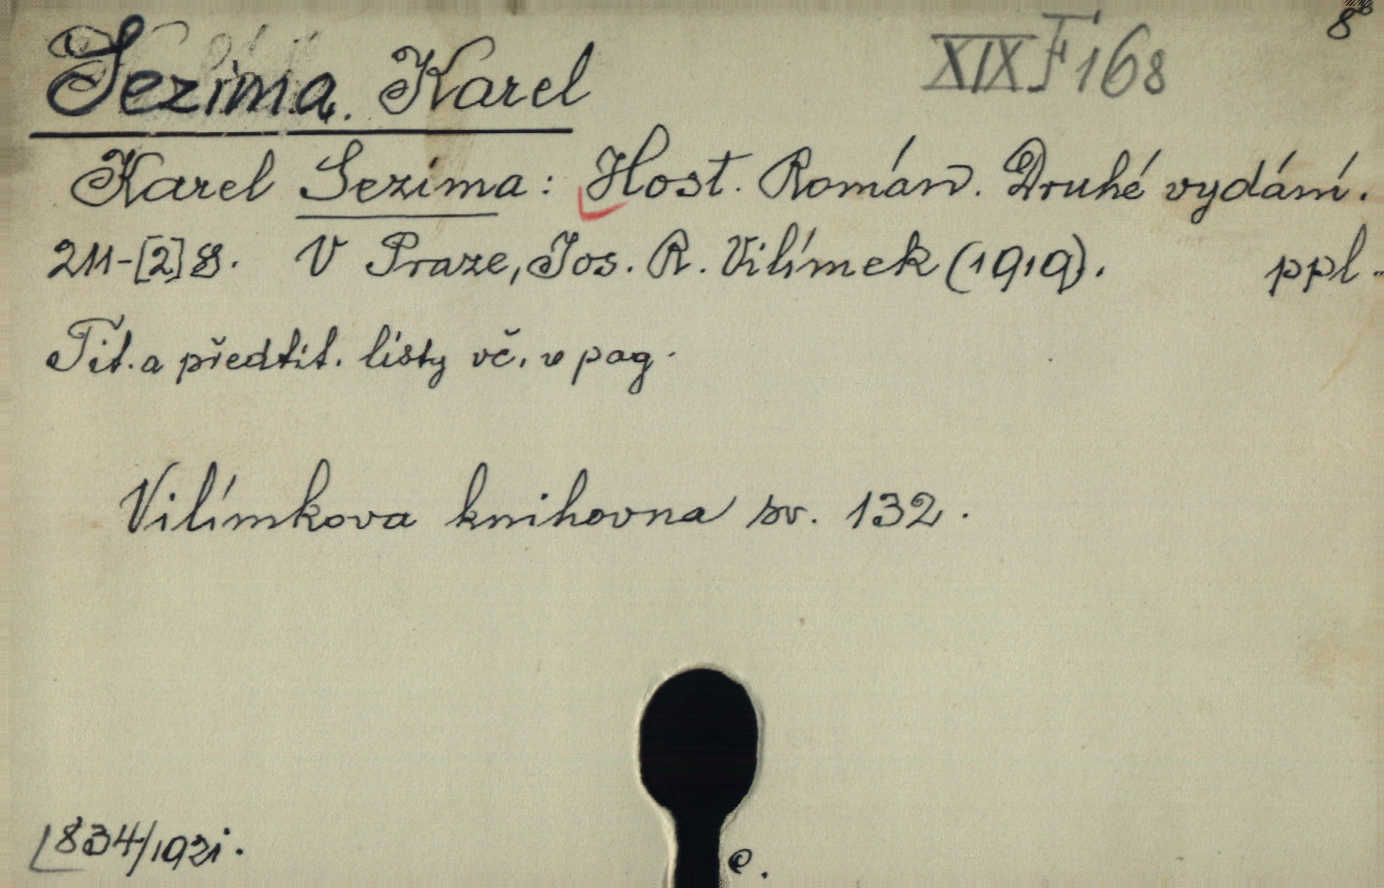 8°
XIX F 168
Sezima. Karel
Karel Sezima: Host. Román. Druhé vydání.
211-[2] s. V Praze, Jos. R. Vilímek (1919). ppl.
Tit. a předtit. listy vč. v pag.
Vilímkova knihovna sv. 132.
834/1921.
e.